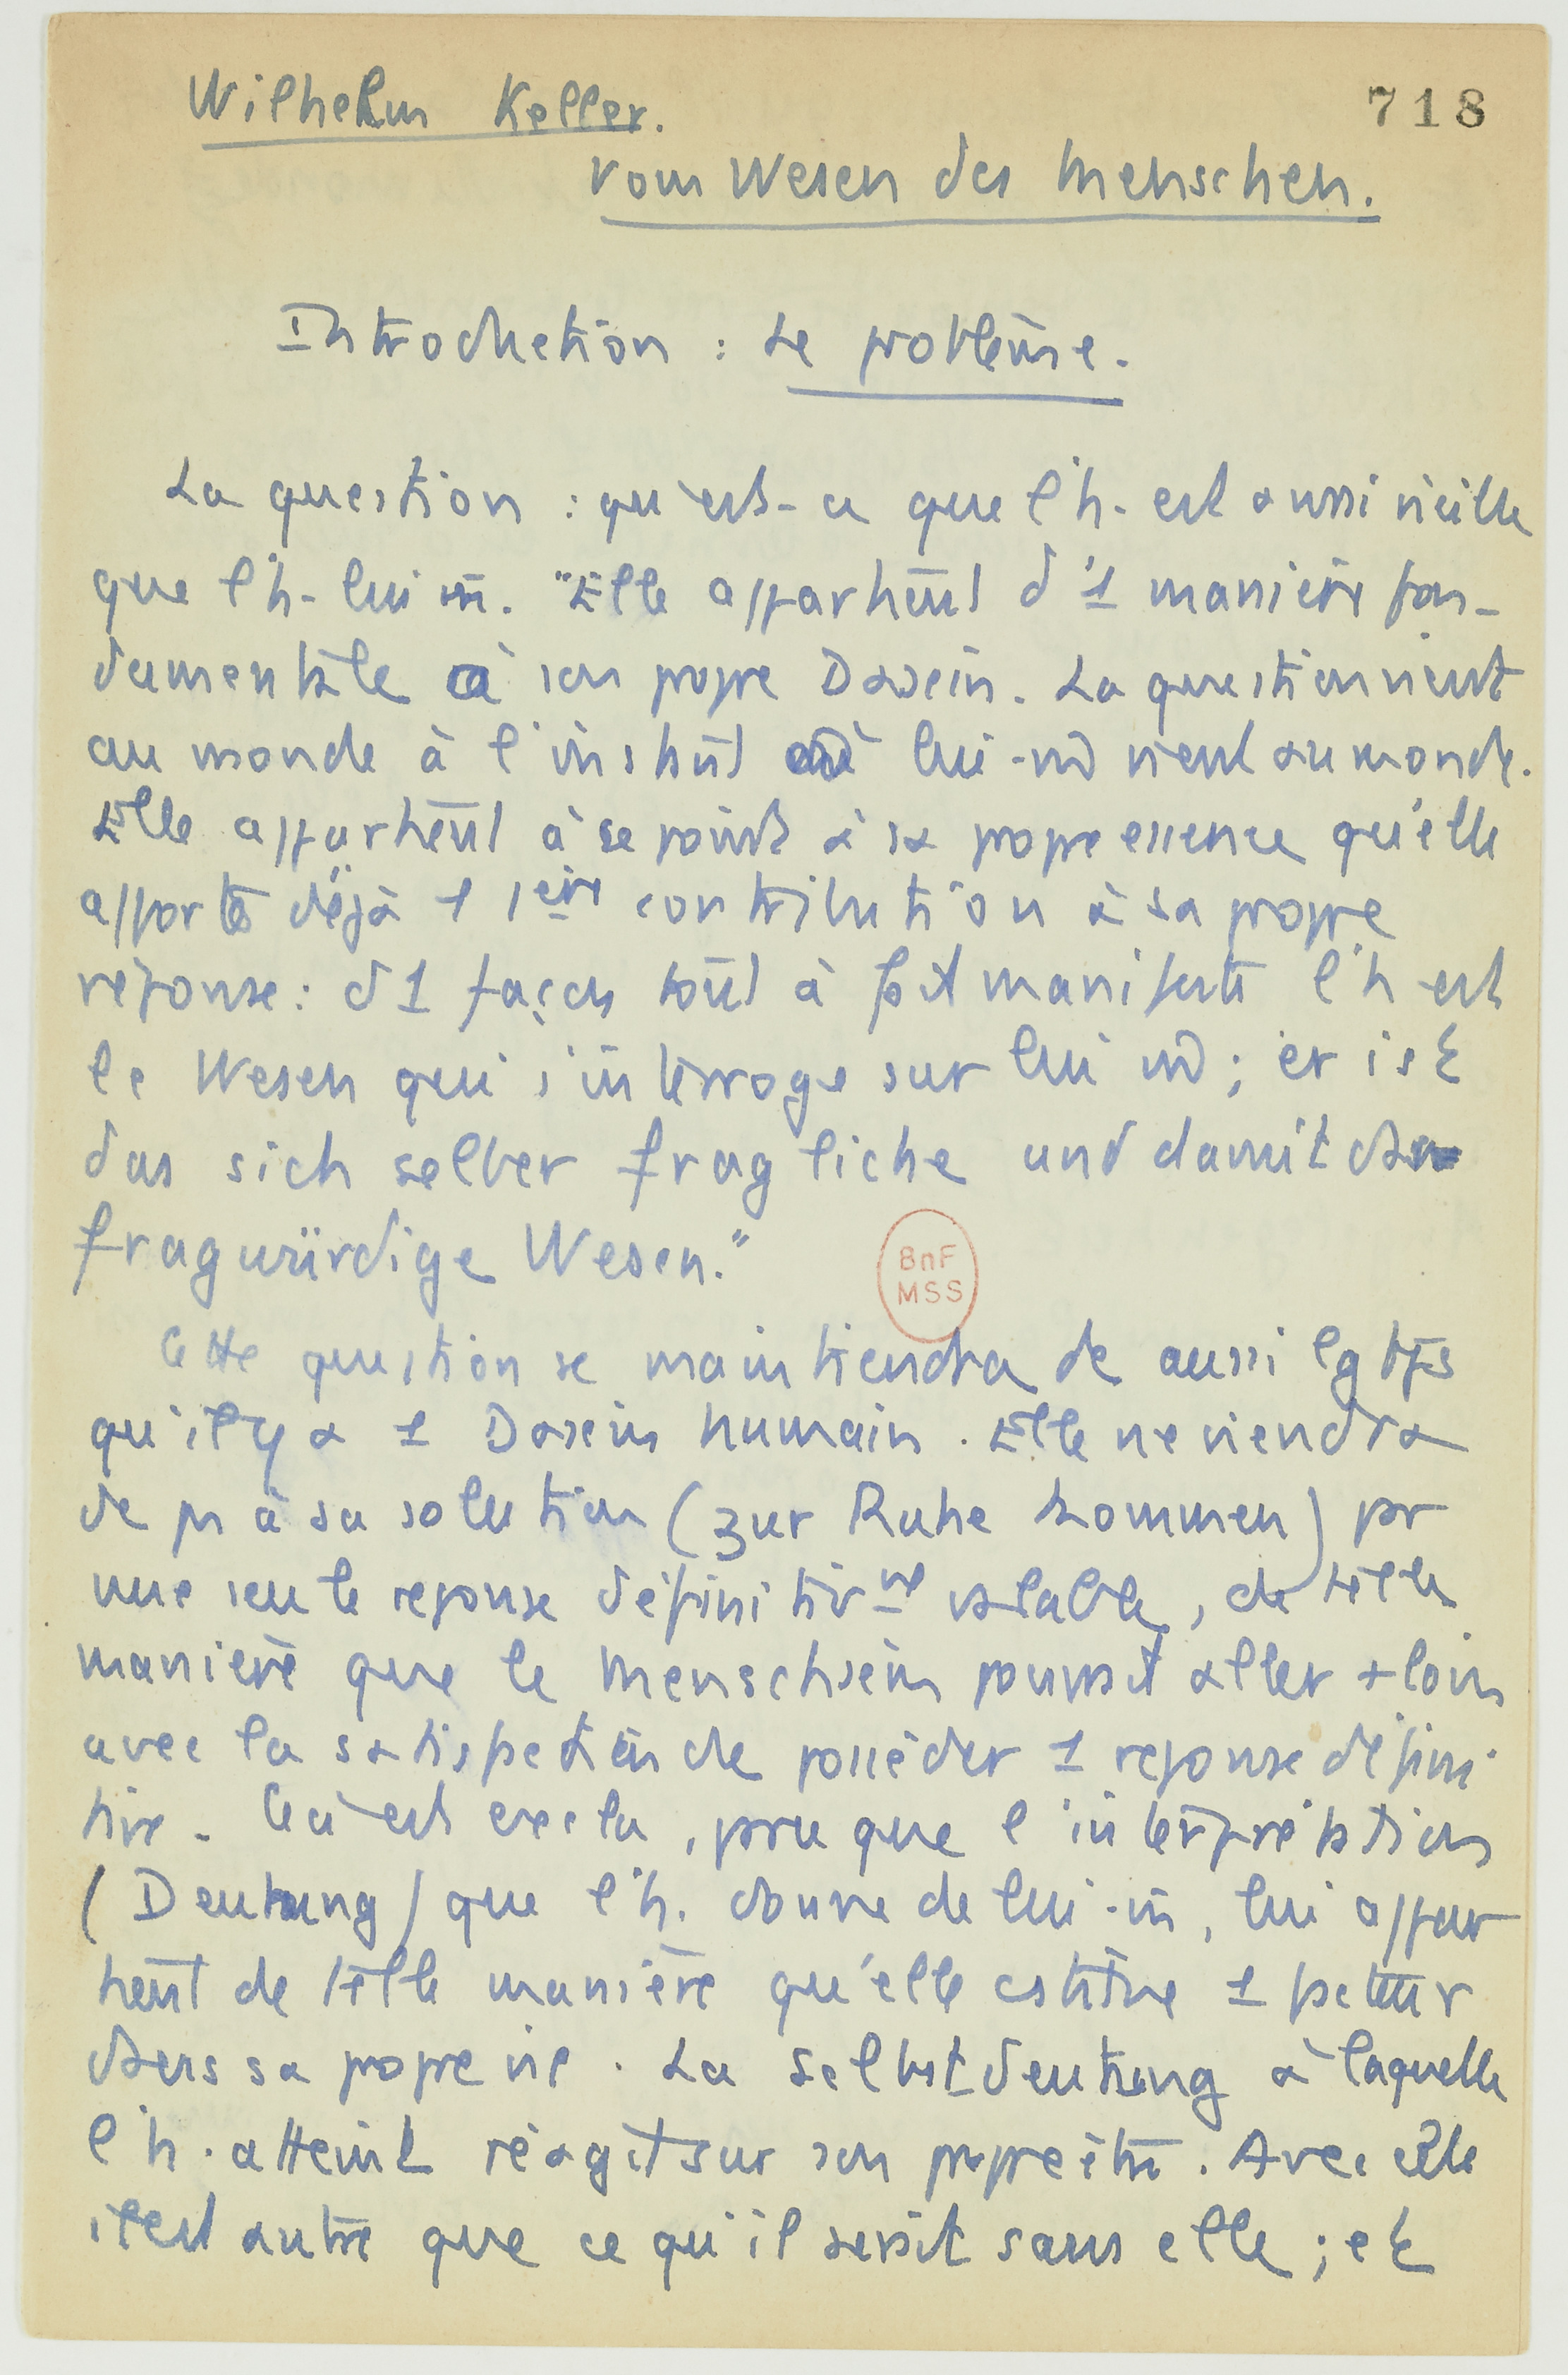 Wilhelm Keller.
718
Vom Wesen des Menschen.
Introduction : Le problème.
La question : qu'est-ce que l'h. est aussi vieille
que l'h. lui m̄. "Elle appartient d'1 manière fon-
damentale à son propre Dasein. La question vient
au monde à l'instant où lui-m̄ vient au monde.
Elle appartient à ce point à sa propre essence qu'elle
apporte déjà 1 1ère contribution à sa propre
réponse : d'1 façon tout à fait manifeste l'h est
le Wesen qui s'interroge sur lui m̄ ; er ist
das sich selber fragliche und damit das
fragwürdige Wesen."
BnF
MSS
Cette question se maintiendra de aussi lg tps
qu'il y a 1 Dasein humain. Elle ne viendra
de à sa solution (zur Ruhe kommen) pr
une seule réponse définitivnt valable, de telle
manière que le Menschsein pourrait aller + loin
avec la satisfaction de posséder 1 réponse défini-
tive. Ceci est exclu, pcu que l'interprétation
(Deutung) que l'h. donne de lui-m̄, lui appar
tient de telle manière qu'elle cstitue 1 facteur
dans sa propre vie. La Selbstdeutung à laquelle
l'h. atteint réagit sur son propre être. Avec elle
il est autre que ce qu'il serait sans elle ; et